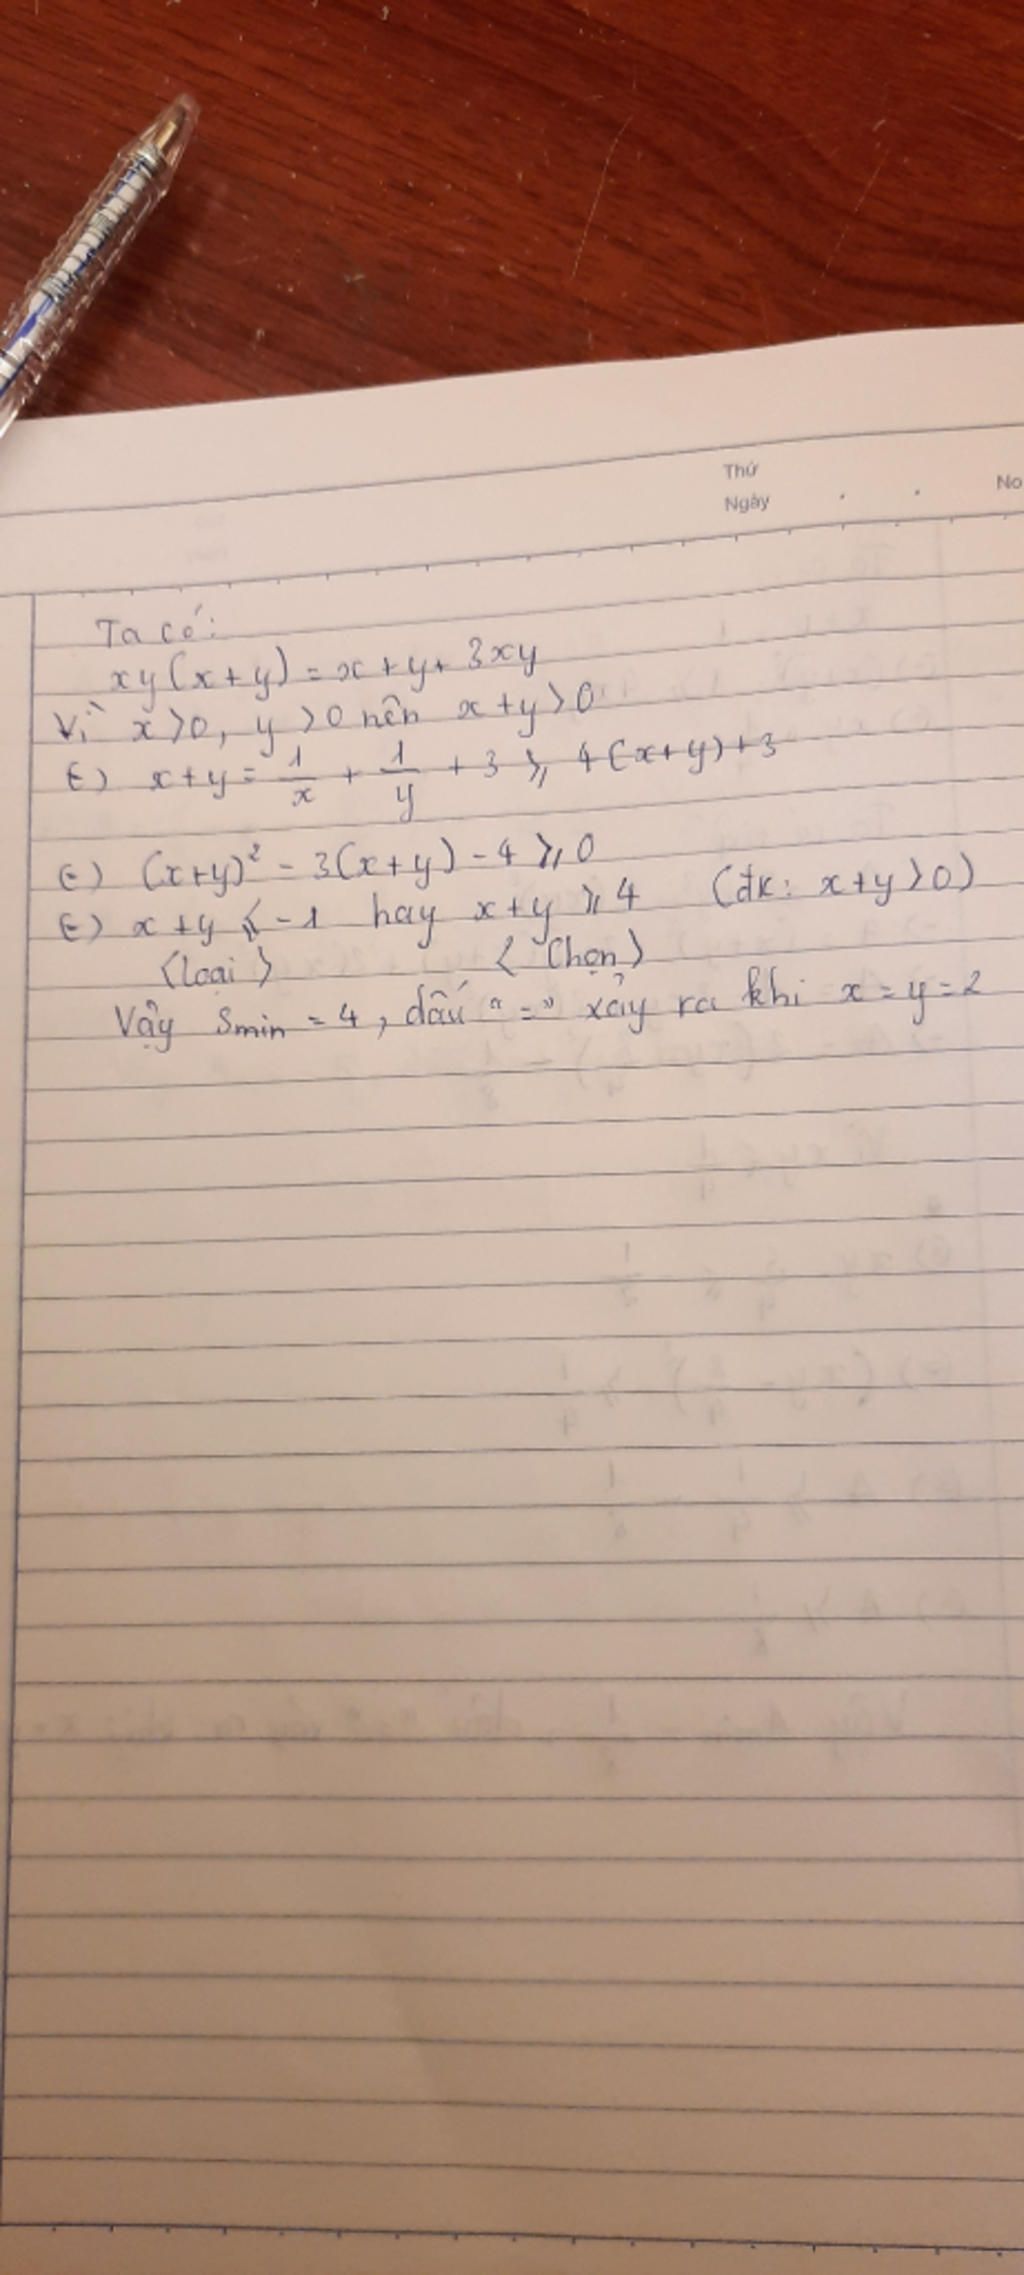 Thứ
Ngày . . No
Ta có:
xy(x+y) = x+y+3xy
Vì x>0, y>0 nên x+y>0
(=) x+y = 1/x + 1/y + 3 ⩾ 4(x+y)+3
(=) (x+y)² - 3(x+y) - 4 ⩾ 0
(=) x+y ⩽ -1 hay x+y ⩾ 4 (đk: x+y>0)
(Loại) (Chọn)
Vậy Smin = 4, dấu "=" xảy ra khi x=y=2